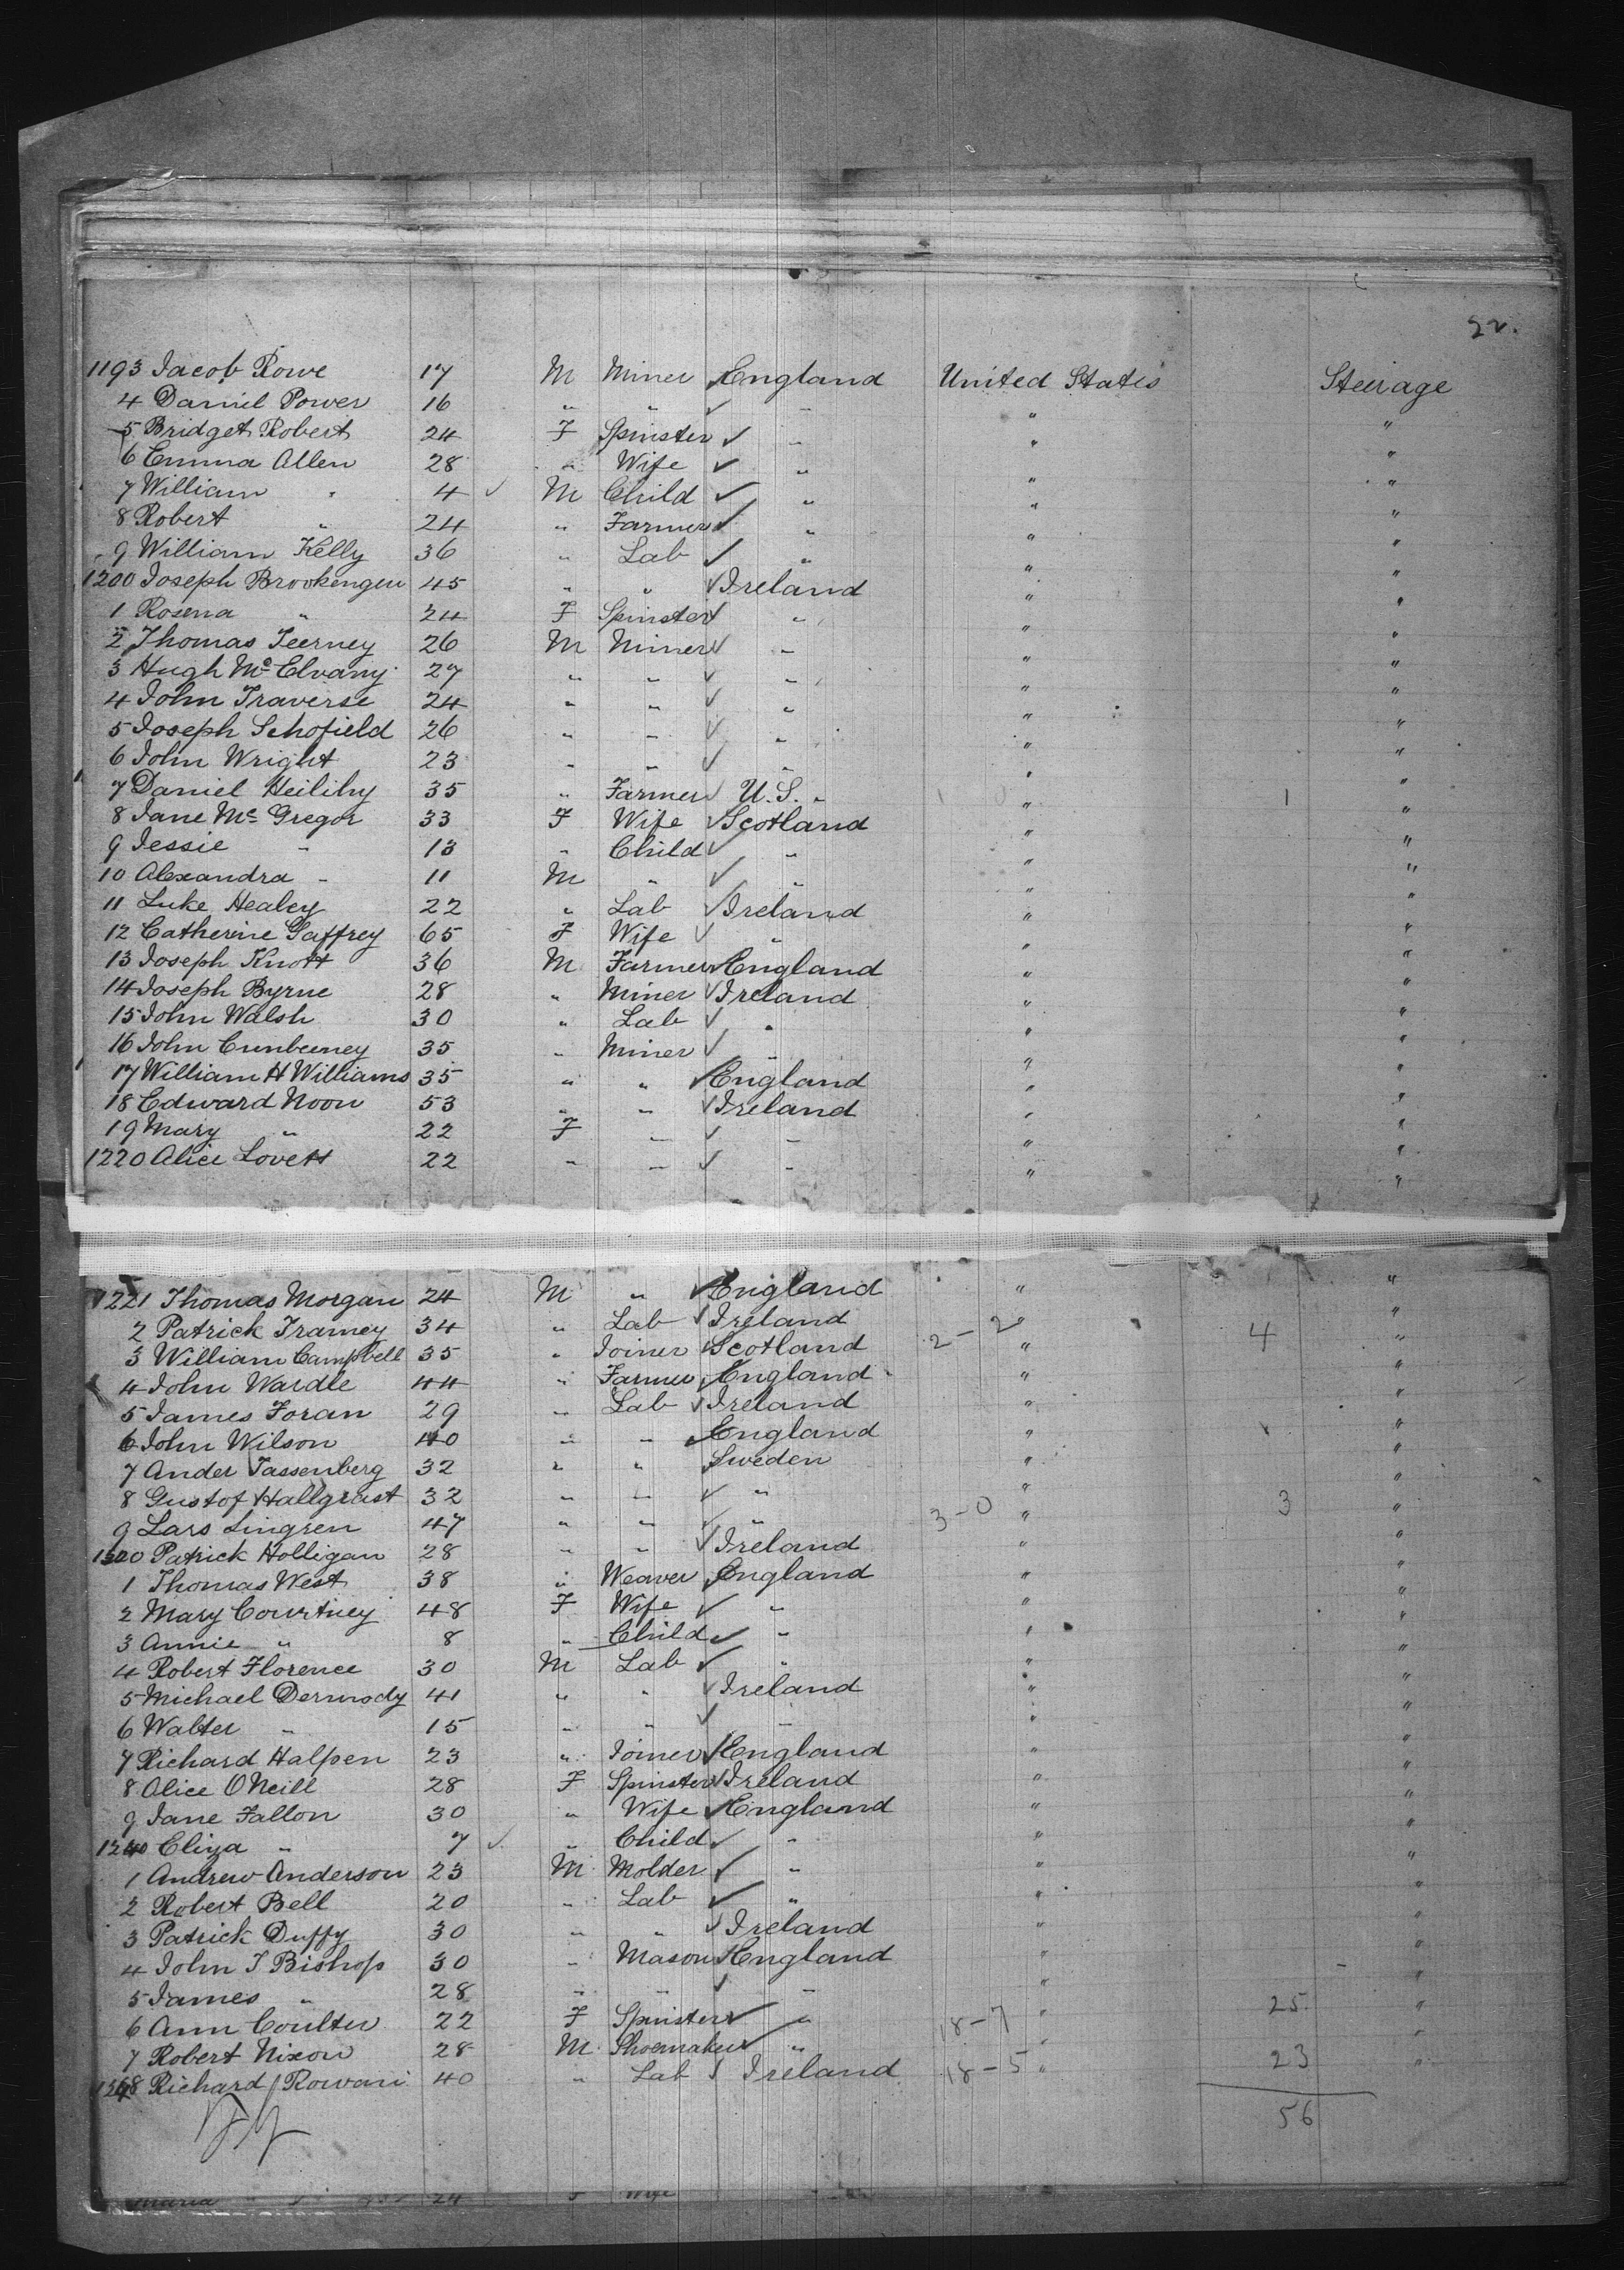 22.
1193 Jacob Rowe 17 M Miner England United States Steerage
4 Daniel Power 16 " " " " "
5 Bridget Robert 24 F Spinster " " "
6 Emma Allen 28 " Wife " " "
7 William " 4 M Child " " "
8 Robert " 24 " Farmer " " "
9 William Kelly 36 " Lab " " "
1200 Joseph Brookengen 45 " " Ireland " "
1 Rosena " 24 F Spinster " " "
2 Thomas Teerney 26 M Miner " " "
3 Hugh Mc Elvany 27 " " " " "
4 John Traverse 24 " " " " "
5 Joseph Schofield 26 " " " " "
6 John Wright 23 " " " " "
7 Daniel 35 " Farmer U.S. " 1 "
8 Jane Mc Gregor 33 F Wife Scotland " "
9 Jessie " 13 " Child " " "
10 Alexandra " 11 M " " " "
11 Luke Healey 22 " Lab Ireland " "
12 Catherine Gaffrey 65 F Wife " " "
13 Joseph Knott 36 M Farmer England " "
14 Joseph Byrne 28 " Miner Ireland " "
15 John Walsh 30 " Lab " " "
16 John Cunbeeney 35 " Miner " " "
17 William H Williams 35 " " England " "
18 Edward Noon 53 " " Ireland " "
19 Mary " 22 F " " " "
1220 Alice Lovett 22 " " " " "
1221 Thomas Morgan 24 M " England " "
2 Patrick Tramey 34 " Lab Ireland " "
3 William Campbell 35 " Joiner Scotland 2-2 " 4 "
4 John Wardle 44 " Farmer England " "
5 James Foran 29 " Lab Ireland " "
6 John Wilson 40 " " England " "
7 Ander Tassenberg 32 " " Sweden " "
8 Gustof Hallgrast 32 " " " " "
9 Lars Lingren 47 " " " 3-0 " 3 "
1230 Patrick Holligan 28 " " Ireland " "
1 Thomas West 38 " Weaver England " "
2 Mary Courtney 48 F Wife " " "
3 Annie " 8 " Child " " "
4 Robert Florence 30 M Lab " " "
5 Michael Dermody 41 " " Ireland " "
6 Walter " 15 " " " " "
7 Richard Halpen 23 " Joiner England " "
8 Alice O'Neill 28 F Spinster Ireland " "
9 Jane Fallon 30 " Wife England " "
1240 Eliza " 7 " Child " " "
1 Andrew Anderson 23 M Molder " " "
2 Robert Bell 20 " Lab " " "
3 Patrick Duffy 30 " " Ireland " "
4 John T Bishop 30 " Mason England " "
5 James " 28 " " " " "
6 Ann Coulter 22 F Spinster " 18-7 " 25 "
7 Robert Nixon 28 M Shoemaker " "
1248 Richard Rowan 40 " Lab Ireland 18-5 " 23 "
56
Maria 24 F Wife